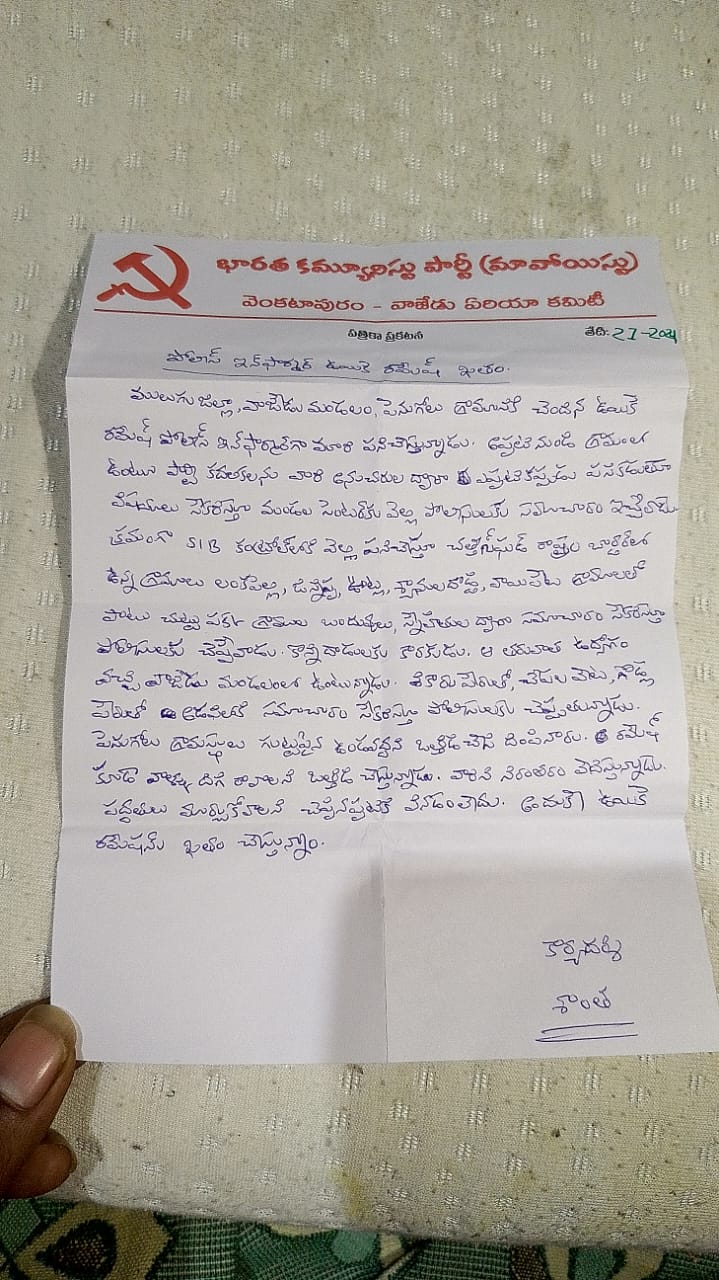 భారత కమ్యూనిస్టు పార్టీ (మావోయిస్టు)
వెంకటాపురం - వాజేడు ఏరియా కమిటీ
పత్రికా ప్రకటన
తేది: 21-2024
పోలీస్ ఇన్‌ఫార్మర్ ఉయికె రమేష్ ఖతం.
ములుగు జిల్లా, వాజేడు మండలం, పెనుగోలు గ్రామానికి చెందిన ఉయికె
రమేష్ పోలీస్ ఇన్‌ఫార్మర్‌గా మారి పనిచేస్తున్నాడు. అప్పటి నుండి గ్రామంలో
ఉంటూ పార్టీ కదలికలను వారి అనుచరుల ద్వారా ఎప్పటికప్పుడు పసికడుతూ
విషయాలు సేకరిస్తూ మండల సెంటర్‌కు వెళ్లి పోలీసులకు సమాచారం ఇచ్చేవాడు
క్రమంగా SIB కంట్రోల్‌లోకి వెళ్లి పనిచేస్తూ చత్తీస్‌ఘడ్ రాష్ట్రం బార్డర్‌లో
ఉన్న గ్రామాలు లంకపల్లి, ఊట్ల, గ్రామాలతో
పాటు చుట్టు పక్కల గ్రామాల బంధువులు, స్నేహితుల ద్వారా సమాచారం సేకరిస్తూ
పోలీసులకు చెప్పేవాడు. కొన్ని దాడులకు కారకుడు. ఆ తరువాత ఉద్యోగం
వచ్చి వాజేడు మండలంలో ఉంటున్నాడు. శికారు పేరుతో, చేపల వేట, గొడ్ల
పేరుతో అడవిలోకి సమాచారం సేకరిస్తూ పోలీసులకు చెప్పుతున్నాడు.
పెనుగోలు గ్రామస్థులు గుట్టపైన ఉండవద్దని ఒత్తిడి చేసి దింపినారు. రమేష్
కూడా వాళ్ళు దిగి రావాలని ఒత్తిడి చేస్తున్నాడు. వారిని నిరంతరం వేదిస్తున్నాడు.
పద్దతులు మార్చుకోవాలని చెప్పినప్పటికీ వినడంలేదు. అందుకే ఉయికె
రమేష్‌ను ఖతం చేస్తున్నాం.
కార్యదర్శి
శాంత